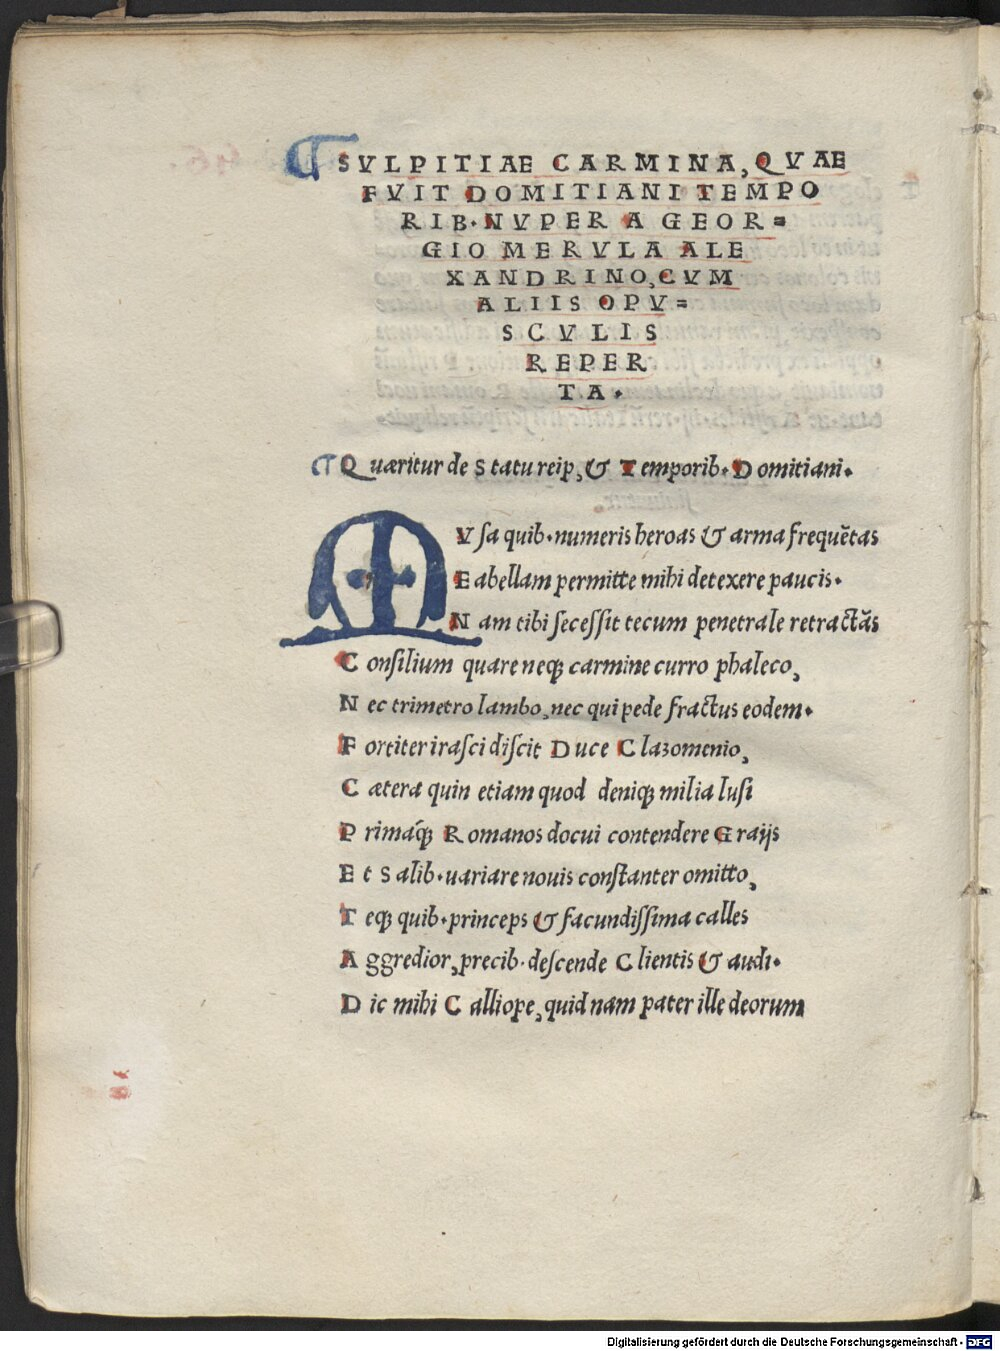 SVLPITIAE CARMINA, QVAE
FVIT DOMITIANI TEMPO
RIB· NVPER A GEOR=
GIO MERVLA ALE
XANDRINO, CVM
ALIIS OPV=
SCVLIS
REPER
TA·
Quæritur de Statu reip, & Temporib· Domitiani·
MVſa quib· numeris heroas & arma frequẽtas
Eabellam permitte mihi detexere paucis·
Nam tibi ſeceſſit tecum penetrale retractãs
Conſilium quare neqꝫ carmine curro phaleco,
Nec trimetro lambo, nec qui pede fractus eodem·
Fortiter iraſci diſcit Duce Clazomenio,
Cætera quin etiam quod deniqꝫ milia luſi
Primáqꝫ Romanos docui contendere Graijs
Et Salib· uariare nouis conſtanter omitto,
Teqꝫ quib· princeps & facundiſſima calles
Aggredior, precib· deſcende Clientis & audi·
Dic mihi Calliope, quid nam pater ille deorum
Digitalisierung gefördert durch die Deutsche Forschungsgemeinschaft - DFG